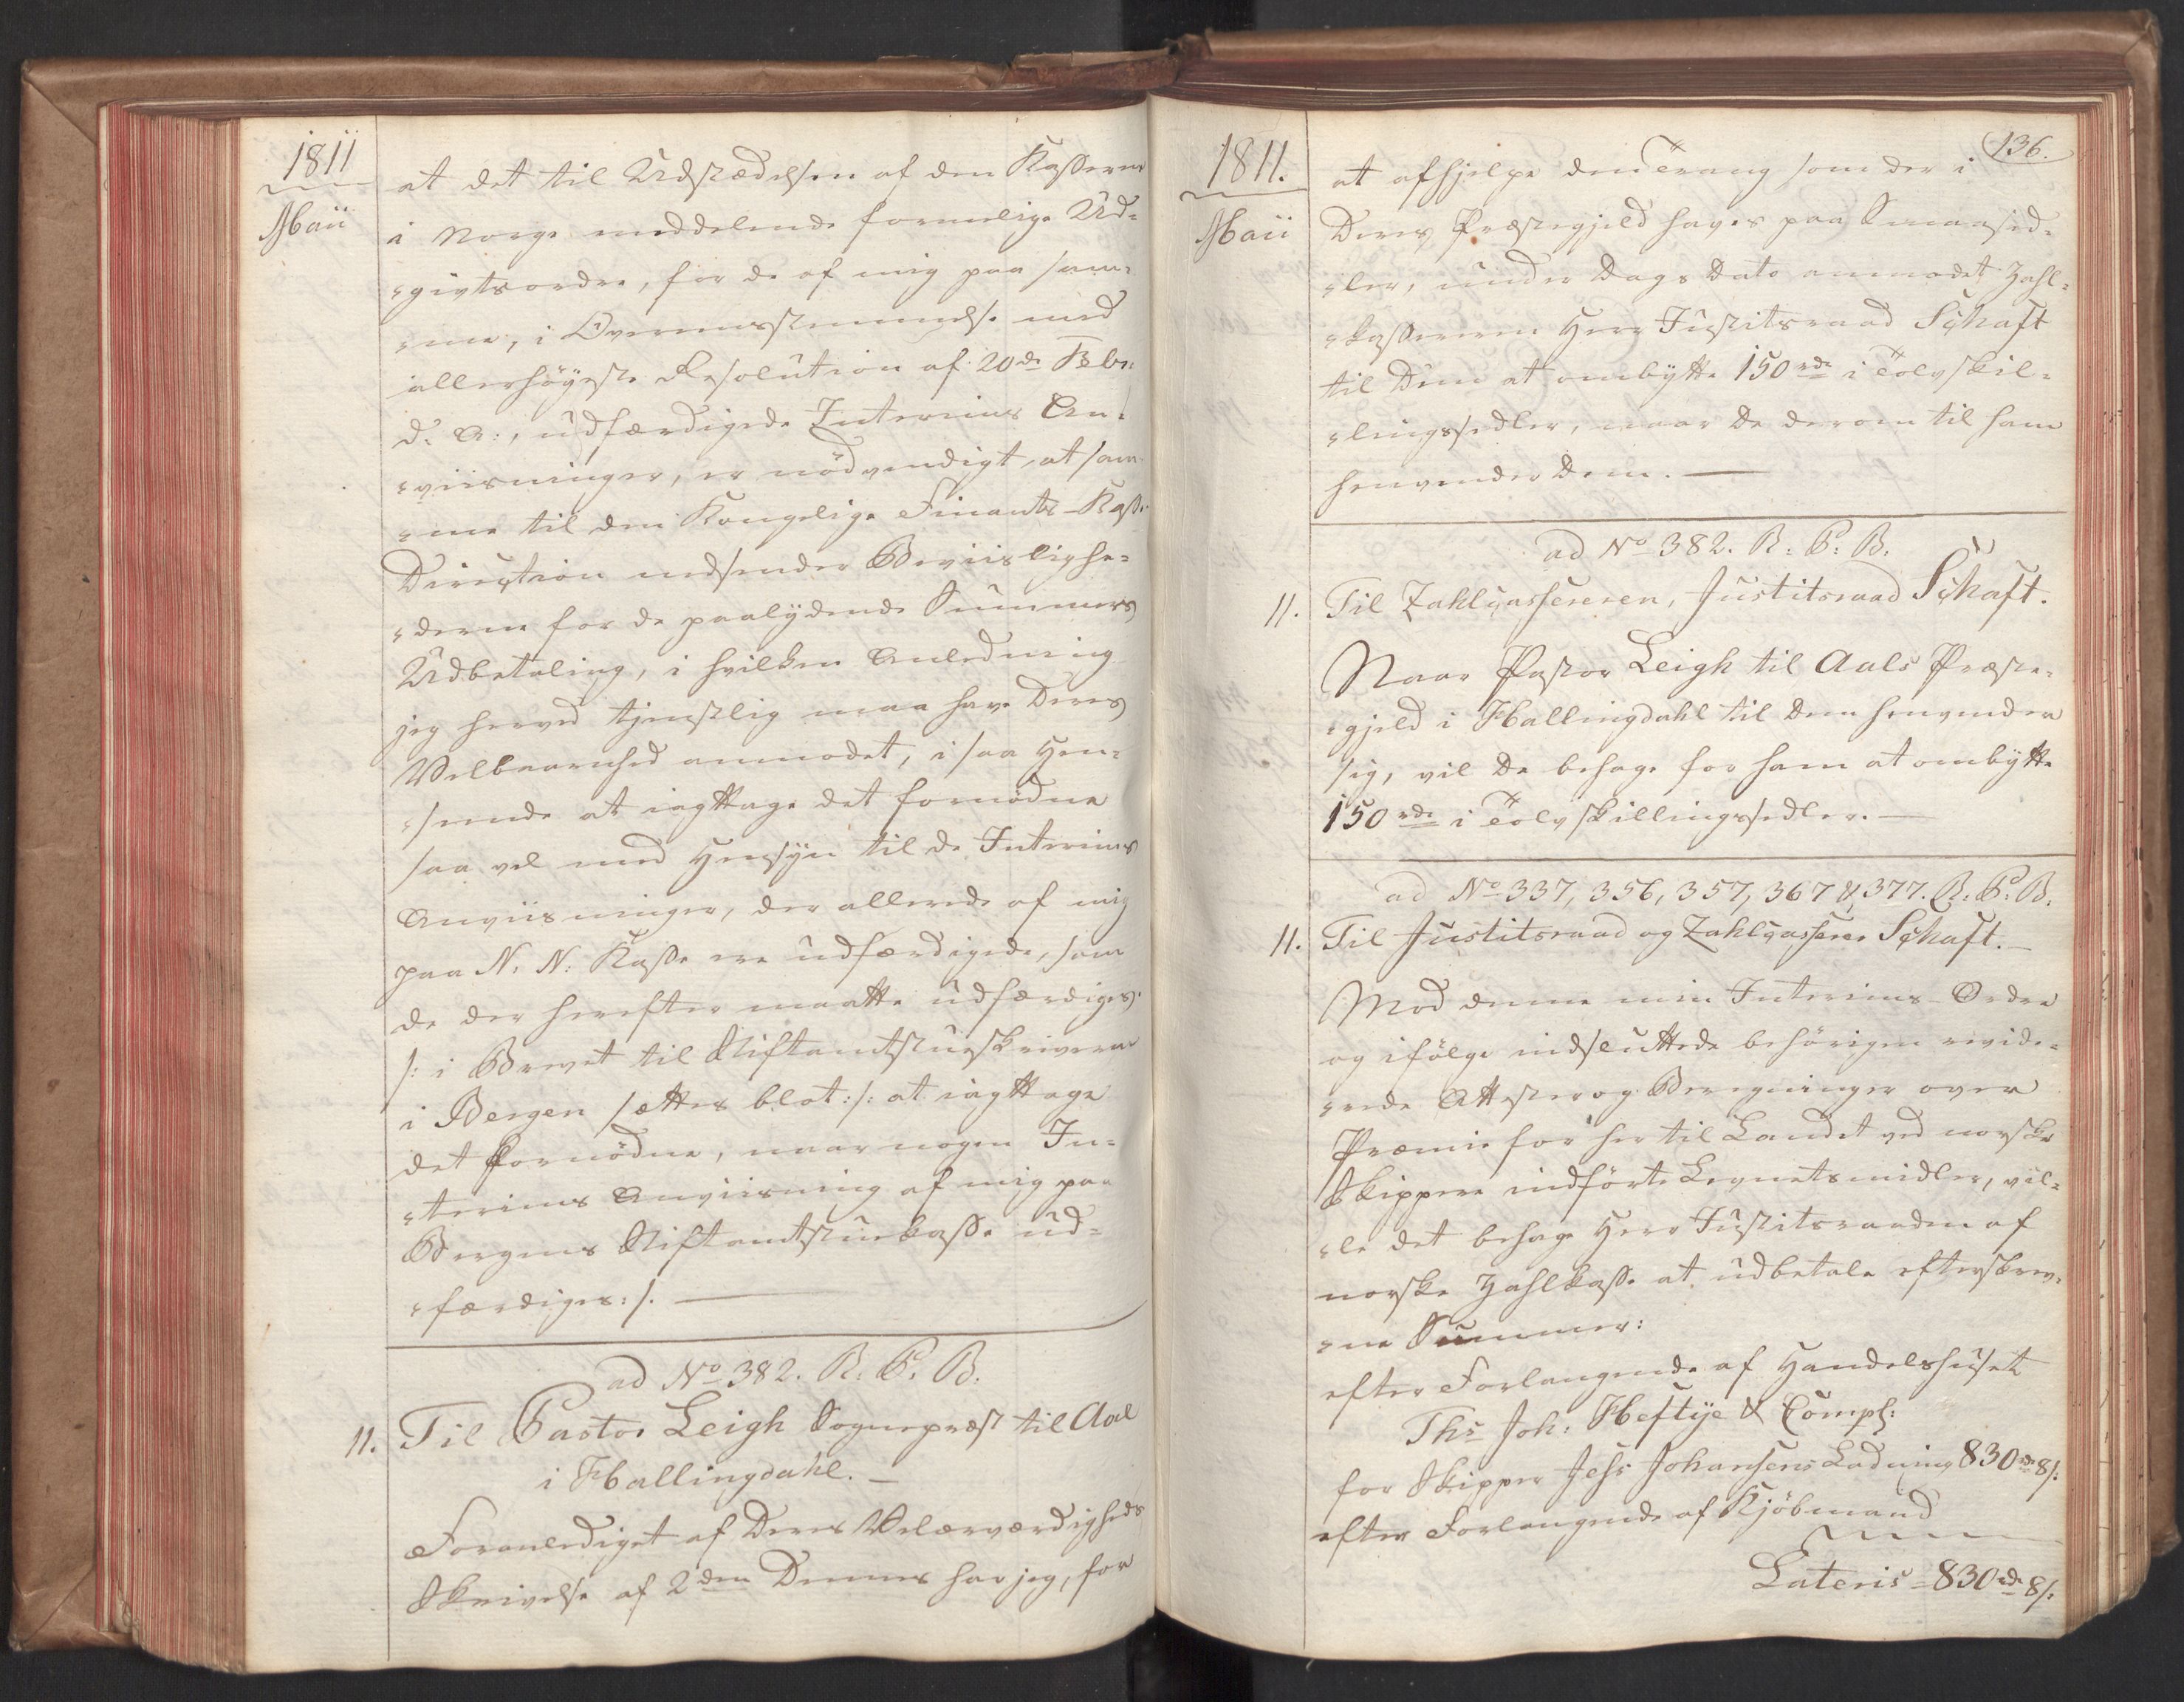 1811
Maii
at det til Udstædelsen af den Kasserne
i Norge meddelende formelige Ud-
-givtsordre, for de af mig paa sam-
-me, i Overeensstemmelse med
allerhöyeste Resolution af 20de Febr:
d: A:, udfærdigede Interims An-
-viisninger, er nödvendigt, at sam-
-me til den Kongelige Finants-Kasse
Direction nedsender Beviislighe-
-derne for de paalydende Summers
Udbetaling, i hvilken Anledning
jeg herved tjenstlig maa have Deres
Velbaarnhed anmodet, i saa Hen-
-seende at iagttage det fornödne
saa vel med Hensyn til de Interims
Anviisninger, der allerede af mig
paa N. N: Kasse ere udfærdigede, som
de der herefter maatte udfærdiges.
/: i Brevet til Stiftamtstueskriveren
i Bergen sættes blot :/: at iagttage
det fornödne, naar nogen In-
-terims Anviisning af mig paa
Bergens Stiftamtstuekasse ud-
-færdiges :/.
ad No 382. R: P: B.
11. Til Pastor Leigh Sognepræst til Aal
i Hallingdahl.
Foranlediget af Deres Velærværdigheds
Skrivelse af 2den Dennes har jeg, for
1811.
136.
Maii
at afhjelpe den Trang som der i
Deres Præstegjeld haves paa Smaased-
-ler, under Dags Dato anmodet Zahl-
-kasserern Herr Justitsraad Schaft
til Dem at ombytte 150 rdr i Tolvskil-
-lingssedler, naar De derom til ham
henvender Dem.
ad No 382. R: P: B.
11. Til Zahlcassereren, Justitsraad Schaft.
Naar Pastor Leigh til Aals Præste-
-gjeld i Hallingdahl til Dem henvender
sig, vil De behage for ham at ombytte
150 rdr i Tolvskillingssedler.
ad No 337, 356, 357, 367 & 377. R: P: B:
11. Til Justitsraad og Zahlcasserer Schaft.
Mod denne min Interims-Ordre
og ifölge indsluttede behörigen revide-
-rede Attester og Beregninger over
Præmie for her til Landet ved norske
Skippere indförte Levnetsmidler, vil-
-le det behage Herr Justitsraaden af
norske Zahlkasse at udbetale efterskrev-
-ne Summer:
efter Forlangende af Handelshuset
Ths Joh: Heftije & Comp:
for Skipper Jess Johansens Ladning 830 rdr 8/:
efter Forlangende af Kjöbmand
Lateris = 830 rdr 8/: